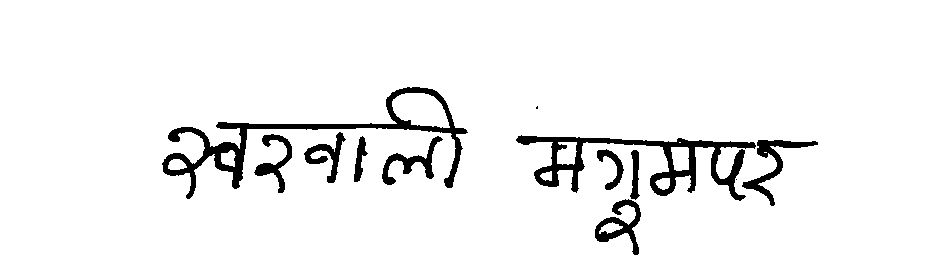 खरवाली मगूमपर